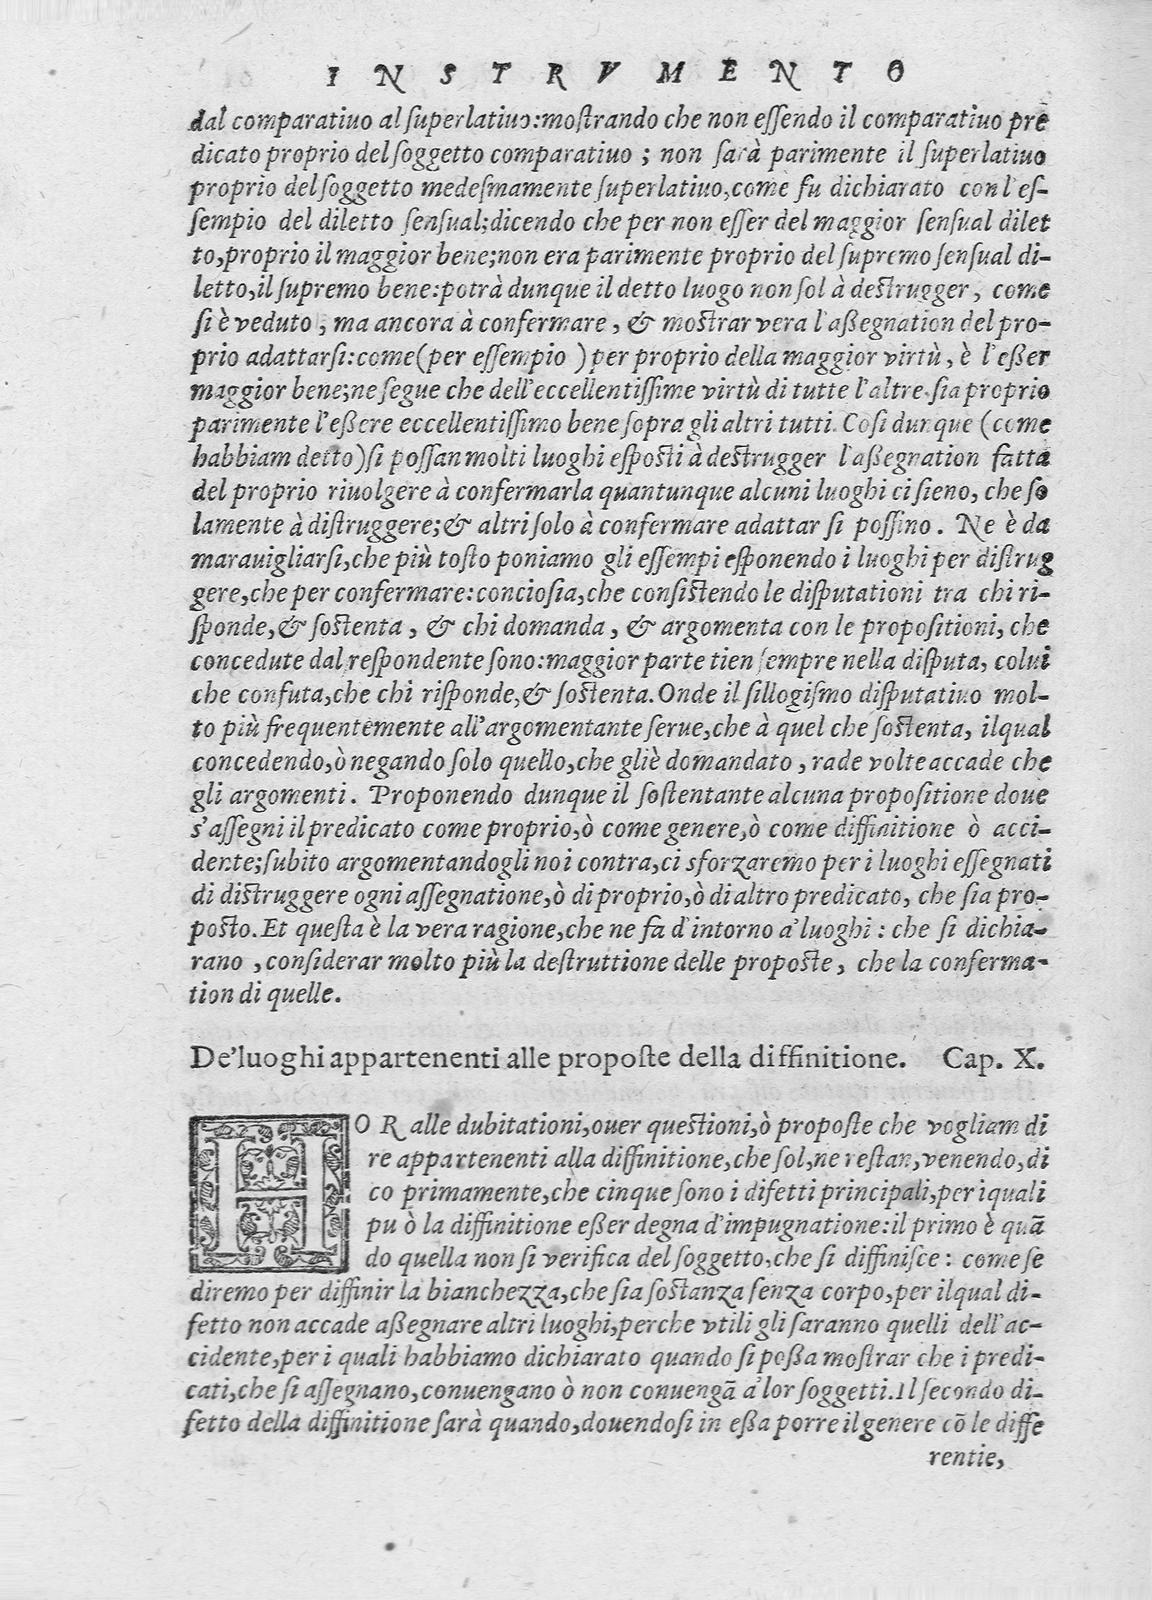 INSTRVMENTO
dal comparatiuo al ſuperlatiuo:moſtrando che non eſſendo il comparatiuo prē
dicato proprio del ſoggetto comparatiuo ; non ſarà parimente il ſuperlatiuo
proprio del ſoggetto medeſmamente ſuperlatiuo,come fu dichiarato con l'eſ-
ſempio del diletto ſenſual;dicendo che per non eſſer del maggior ſenſual dilet
to,proprio il maggior bene;non era parimente proprio del ſupremo ſenſual di-
letto,il ſupremo bene:potrà dunque il detto luogo non ſol à deſtrugger, come
ſi è veduto , ma ancora à confermare , & moſtrar vera l'aßegnation del pro-
prio adattarſi:come(per eſſempio )per proprio della maggior virtù, è l'eßer
maggior bene;ne ſegue che dell'eccellentiſſime virtù di tutte l'altre,ſia proprio
parimente l'eßere eccellentiſſimo bene ſopra gli altri tutti. Coſi dunque (come
habbiam detto)ſi poſſan molti luoghi eſpoſti à deſtrugger l'aßegnation fatta
del proprio riuolgere à confermarla quantunque alcuni luoghi ci ſieno, che ſo
lamente à diſtruggere;& altri ſolo à confermare adattar ſi poſſino. Ne è da
marauigliarſi,che più toſto poniamo gli eſſempi eſponendo i luoghi per diſtrug
gere,che per confermare:concioſia,che conſiſtendo le diſputationi tra chi ri-
ſponde,& ſoſtenta , & chi domanda , & argomenta con le propoſitioni, che
concedute dal reſpondente ſono:maggior parte tien ſempre nella diſputa, colui
che confuta,che chi riſponde,& ſoſtenta.Onde il ſillogiſmo diſputatiuo mol-
to più frequentemente all'argomentante ſerue,che à quel che ſoſtenta, ilqual
concedendo,ò negando ſolo quello,che gliè domandato , rade volte accade che
gli argomenti. Proponendo dunque il ſoſtentante alcuna propoſitione doue
s'aſſegni il predicato come proprio,ò come genere,ò come diffinitione ò acci-
dente;ſubito argomentandogli noi contra,ci sforzaremo per i luoghi eſſegnati
di diſtruggere ogni aſſegnatione,ò di proprio,ò di altro predicato, che ſia pro-
poſto.Et queſta è la vera ragione,che ne fa d'intorno a'luoghi : che ſi dichia-
rano ,conſiderar molto più la deſtruttione delle propoſte, che la conferma-
tion di quelle.
De'luoghi appartenenti alle propoſte della diffinitione. Cap. X.
HOR alle dubitationi,ouer queſtioni,ò propoſte che vogliam di
re appartenenti alla diffinitione,che ſol,ne reſtan,venendo,di
co primamente,che cinque ſono i difetti principali,per i quali
pu ò la diffinitione eßer degna d'impugnatione:il primo è quā
do quella non ſi verifica del ſoggetto,che ſi diffiniſce : come ſe
diremo per diffinir la bianchezza,che ſia ſoſtanza ſenza corpo,per ilqual di-
fetto non accade aßegnare altri luoghi,perche vtili gli ſaranno quelli dell'ac-
cidente,per i quali habbiamo dichiarato quando ſi poßa moſtrar che i predi-
cati,che ſi aſſegnano,conuengano ò non conuengā a'lor ſoggetti.Il ſecondo di-
fetto della diffinitione ſarà quando,douendoſi in eßa porre il genere cō le diffe
rentie,